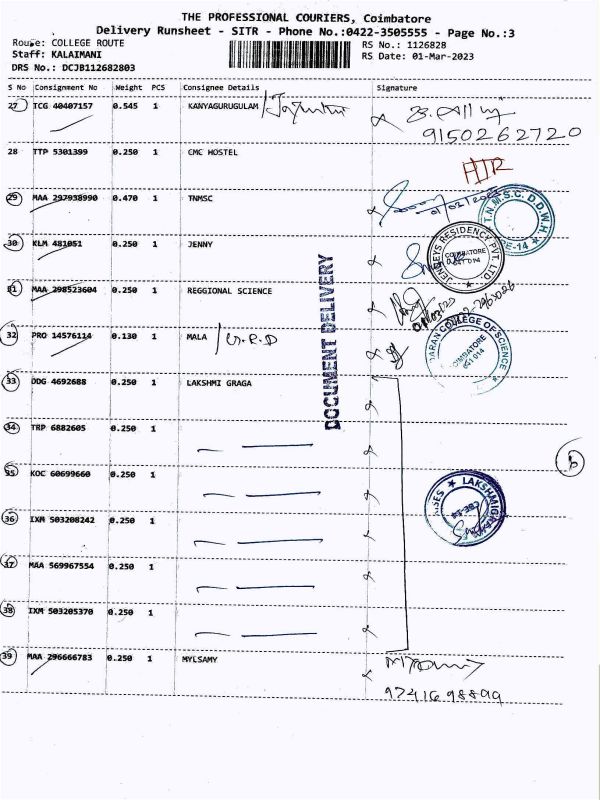 THE PROFESSIONAL COURIERS, Coimbatore
Delivery Runsheet - SITR - Phone No.:0422-3505555 - Page No.:3
Route: COLLEGE ROUTE
RS No.: 1126828
Staff: KALAIMANI
RS Date: 01-Mar-2023
DRS No.: DCJB112682803
S No Consignment No Weight PCS Consignee Details Signature
27 TCG 40407157 0.545 1 KANYAGURUGULAM
9150262720
28 TTP 5301399 0.250 1 CMC HOSTEL
29 MAA 297938990 0.470 1 TNMSC
T.N.M.S.C. D.D.W.H
30 KLM 481051 0.250 1 JENNY
JENNEYS RESIDENCY PVT. LTD
COIMBATORE
641 014
31 MAA 298523604 0.250 1 REGGIONAL SCIENCE
DOCUMENT DELIVERY
32 PRO 14576114 0.130 1 MALA / G.R.D
COLLEGE OF SCIENCE
COIMBATORE
641 014
33 ODG 4692688 0.250 1 LAKSHMI GRAGA
34 TRP 6882605 0.250 1
6
35 KOC 60699660 0.250 1
36 IXM 503208242 0.250 1
37 MAA 569967554 0.250 1
38 IXM 503205370 0.250 1
39 MAA 296666783 0.250 1 MYLSAMY
9741698899